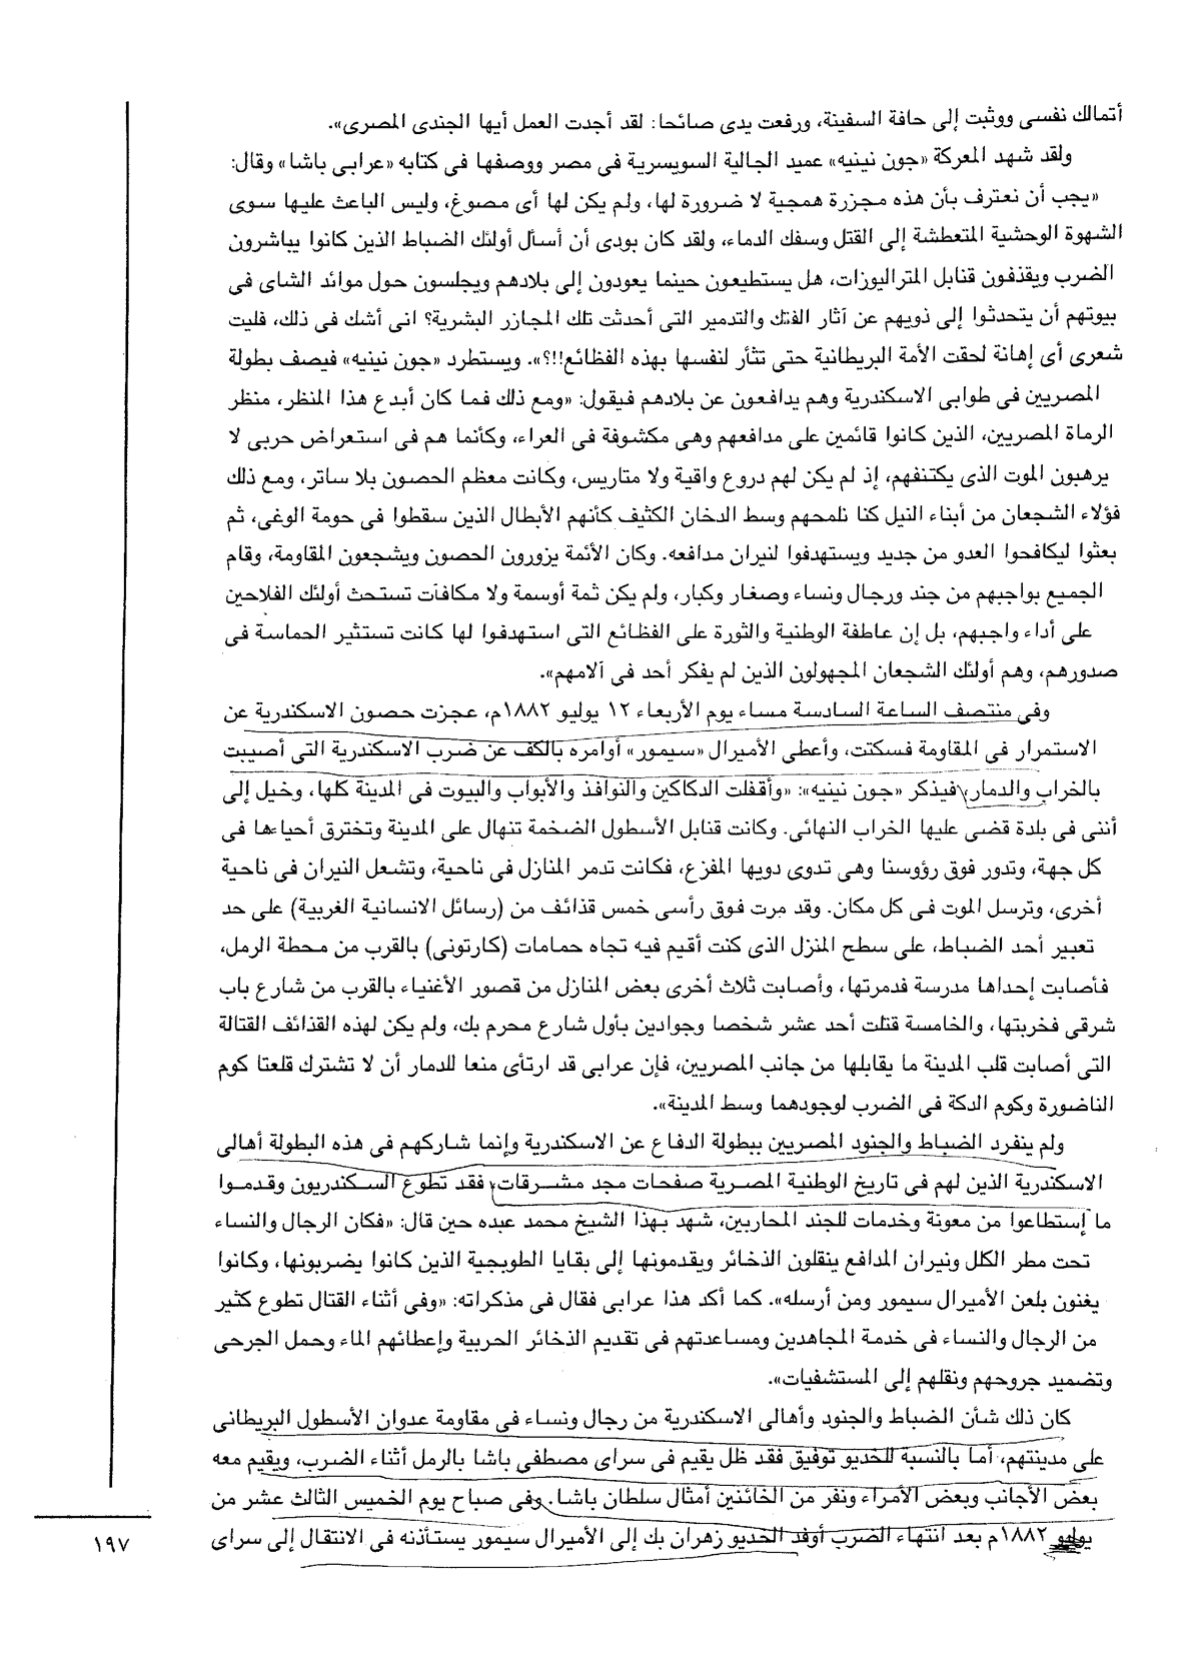 أتمالك نفسى ووثبت إلى حافة السفينة، ورفعت يدى صائحا: لقد أجدت العمل أيها الجندى المصرى».
ولقد شهد المعركة «جون نينيه» عميد الجالية السويسرية فى مصر ووصفها فى كتابه «عرابى باشا» وقال:
«يجب أن نعترف بأن هذه مجزرة همجية لا ضرورة لها، ولم يكن لها أى مصوغ، وليس الباعث عليها سوى
الشهوة الوحشية المتعطشة إلى القتل وسفك الدماء، ولقد كان بودى أن أسأل أولئك الضباط الذين كانوا يباشرون
الضرب ويقذفون قنابل المتراليوزات، هل يستطيعون حينما يعودون إلى بلادهم ويجلسون حول موائد الشاى فى
بيوتهم أن يتحدثوا إلى ذويهم عن آثار الفتك والتدمير التى أحدثت تلك المجازر البشرية؟ انى أشك فى ذلك، فليت
شعرى أى إهانة لحقت الأمة البريطانية حتى تثأر لنفسها بهذه الفظائع!!؟». ويستطرد «جون نينيه» فيصف بطولة
المصريين فى طوابى الاسكندرية وهم يدافعون عن بلادهم فيقول: «ومع ذلك فما كان أبدع هذا المنظر، منظر
الرماة المصريين، الذين كانوا قائمين على مدافعهم وهى مكشوفة فى العراء، وكأنما هم فى استعراض حربى لا
يرهبون الموت الذى يكتنفهم، إذ لم يكن لهم دروع واقية ولا متاريس، وكانت معظم الحصون بلا ساتر، ومع ذلك
فؤلاء الشجعان من أبناء النيل كنا نلمحهم وسط الدخان الكثيف كأنهم الأبطال الذين سقطوا فى حومة الوغى، ثم
بعثوا ليكافحوا العدو من جديد ويستهدفوا لنيران مدافعه. وكان الأئمة يزورون الحصون ويشجعون المقاومة، وقام
الجميع بواجبهم من جند ورجال ونساء وصغار وكبار، ولم يكن ثمة أوسمة ولا مكافآت تستحث أولئك الفلاحين
على أداء واجبهم، بل إن عاطفة الوطنية والثورة على الفظائع التى استهدفوا لها كانت تستثير الحماسة فى
صدورهم، وهم أولئك الشجعان المجهولون الذين لم يفكر أحد فى آلامهم».
وفى منتصف الساعة السادسة مساء يوم الأربعاء ١٢ يوليو ١٨٨٢م، عجزت حصون الاسكندرية عن
الاستمرار فى المقاومة فسكتت، وأعطى الأميرال «سيمور» أوامره بالكف عن ضرب الاسكندرية التى أصيبت
بالخراب والدمار، فيذكر «جون نينيه»: «وأقفلت الدكاكين والنوافذ والأبواب والبيوت فى المدينة كلها، وخيل إلى
أننى فى بلدة قضى عليها الخراب النهائى. وكانت قنابل الأسطول الضخمة تنهال على المدينة وتخترق أحياءها فى
كل جهة، وتدور فوق رؤوسنا وهى تدوى دويها المفزع، فكانت تدمر المنازل فى ناحية، وتشعل النيران فى ناحية
أخرى، وترسل الموت فى كل مكان. وقد مرت فوق رأسى خمس قذائف من (رسائل الانسانية الغربية) على حد
تعبير أحد الضباط، على سطح المنزل الذى كنت أقيم فيه تجاه حمامات (كارتونى) بالقرب من محطة الرمل،
فأصابت إحداها مدرسة فدمرتها، وأصابت ثلاث أخرى بعض المنازل من قصور الأغنياء بالقرب من شارع باب
شرقى فخربتها، والخامسة قتلت أحد عشر شخصا وجوادين بأول شارع محرم بك، ولم يكن لهذه القذائف القتالة
التى أصابت قلب المدينة ما يقابلها من جانب المصريين، فإن عرابى قد ارتأى منعا للدمار أن لا تشترك قلعتا كوم
الناضورة وكوم الدكة فى الضرب لوجودهما وسط المدينة».
ولم ينفرد الضباط والجنود المصريين ببطولة الدفاع عن الاسكندرية وإنما شاركهم فى هذه البطولة أهالى
الاسكندرية الذين لهم فى تاريخ الوطنية المصرية صفحات مجد مشرقات، فقد تطوع السكندريون وقدموا
ما إستطاعوا من معونة وخدمات للجند المحاربين، شهد بهذا الشيخ محمد عبده حين قال: «فكان الرجال والنساء
تحت مطر الكلل ونيران المدافع ينقلون الذخائر ويقدمونها إلى بقايا الطوبجية الذين كانوا يضربونها، وكانوا
يغنون بلعن الأميرال سيمور ومن أرسله». كما أكد هذا عرابى فقال فى مذكراته: «وفى أثناء القتال تطوع كثير
من الرجال والنساء فى خدمة المجاهدين ومساعدتهم فى تقديم الذخائر الحربية وإعطائهم الماء وحمل الجرحى
وتضميد جروحهم ونقلهم إلى المستشفيات».
كان ذلك شأن الضباط والجنود وأهالى الاسكندرية من رجال ونساء فى مقاومة عدوان الأسطول البريطانى
على مدينتهم، أما بالنسبة للخديو توفيق فقد ظل يقيم فى سراى مصطفى باشا بالرمل أثناء الضرب، ويقيم معه
بعض الأجانب وبعض الأمراء ونفر من الخائنين أمثال سلطان باشا. وفى صباح يوم الخميس الثالث عشر من
يوليو ١٨٨٢م بعد انتهاء الضرب أوفد الخديو زهران بك إلى الأميرال سيمور يستأذنه فى الانتقال إلى سراى
١٩٧